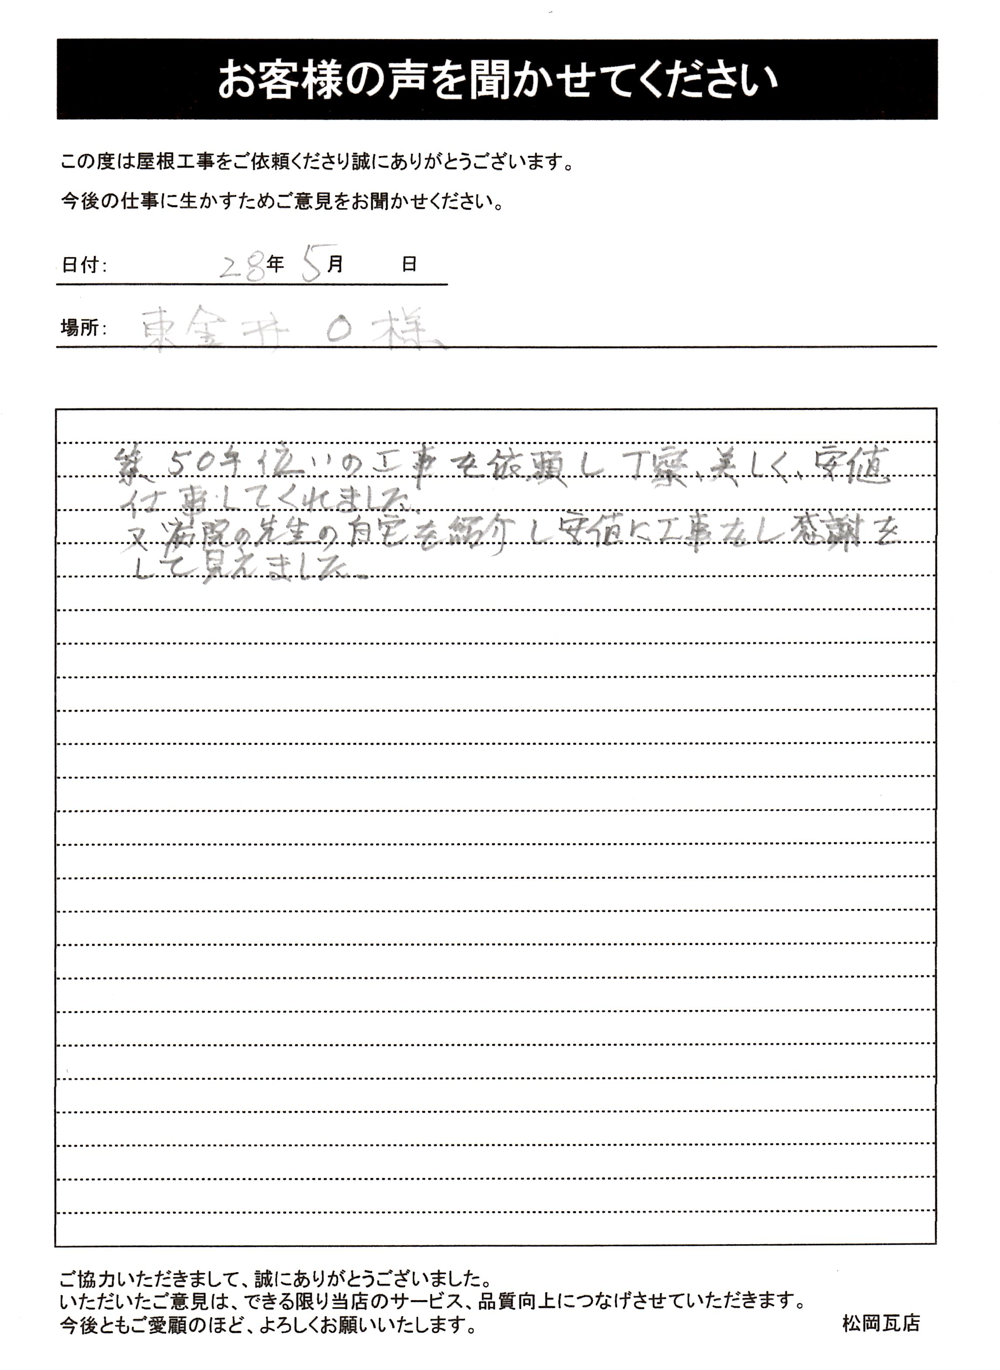 お客様の声を聞かせてください
この度は屋根工事をご依頼くださり誠にありがとうございます。
今後の仕事に生かすためご意見をお聞かせください。
日付： 28年 5月 日
場所： 東金井 O 様
築50年位いの工事を依頼し丁寧、美しく、安値
仕事してくれました。
又病院の先生の自宅を紹介し安値に工事をし感謝を
して見えました。
ご協力いただきまして、誠にありがとうございました。
いただいたご意見は、できる限り当店のサービス、品質向上につなげさせていただきます。
今後ともご愛顧のほど、よろしくお願いいたします。 松岡瓦店